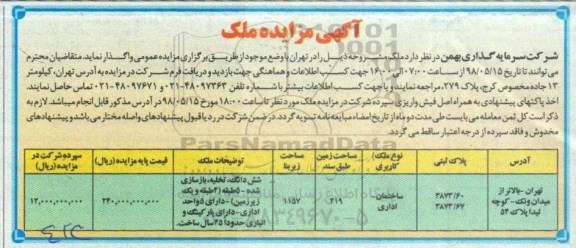 آگهی مزایده ملک
شرکت سرمایه گذاری بهمن در نظر دارد ملک مشروحه ذیل را در تهران با وضع موجود از طریق برگزاری مزایده عمومی واگذار نماید. متقاضیان محترم
می توانند تا تاریخ ۹۸/۰۵/۱۵ از ساعت ۰۷:۰۰ الی ۱۶:۰۰ جهت کسب اطلاعات و هماهنگی جهت بازدید و دریافت فرم شرکت در مزایده به آدرس تهران، کیلومتر
۱۳ جاده مخصوص کرج، پلاک ۲۷۹، مراجعه نمایند و یا جهت کسب اطلاعات بیشتر با شماره تلفن ۴۸۰۹۷۳۶۳-۰۲۱ و ۴۸۰۹۷۶۷۱-۰۲۱ تماس حاصل نمایند.
اخذ پاکتهای پیشنهادی به همراه اصل فیش واریزی سپرده شرکت در مزایده ملک مورد نظر تا ساعت ۱۸:۰۰ مورخ ۹۸/۰۵/۱۵ در آدرس مذکور قابل انجام میباشد. لازم به
ذکر است کل ثمن معامله می بایست طی مدت دو ماه از تاریخ امضاء مبایعه نامه تسویه گردد. در ضمن شرکت در رد یا قبول پیشنهادهای واصله مختار می باشد و پیشنهادهای
مخدوش و فاقد سپرده از درجه اعتبار ساقط می گردد.
آدرس | پلاک ثبتی | نوع ملک کاربری | مساحت زمین طبق سند | مساحت زیربنا | توضیحات ملک | قیمت پایه مزایده (ریال) | سپرده شرکت در مزایده (ریال)
تهران - بالاتر از میدان ونک - کوچه لیدا پلاک ۵۴ | ۳۸۷۳/۶۰ ۳۸۷۳/۶۷ | ساختمان اداری | ۲۱۹ | ۱۱۵۷ | شش دانگ، تخلیه، بازسازی شده - ۵ طبقه (۴ طبقه و یک زیرزمین) - دارای ۵ واحد اداری - دارای پارکینگ و انباری حدوداً ۲۵ سال ساخت. | ۲۴۰,۰۰۰,۰۰۰,۰۰۰ | ۱۲,۰۰۰,۰۰۰,۰۰۰
ParsNamadData